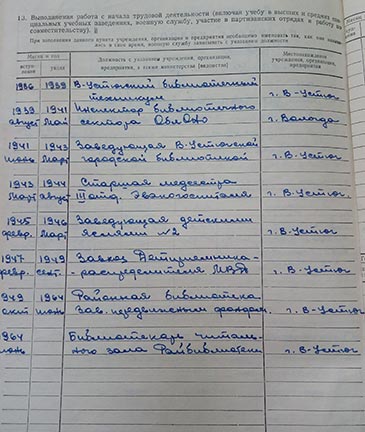 13. Выполняемая работа с начала трудовой деятельности (включая учебу в высших и средних специальных учебных заведениях, военную службу, участие в партизанских отрядах и работу по совместительству).
При заполнении данного пункта учреждения, организации и предприятия необходимо именовать так, как они назывались в свое время, военную службу записывать с указанием должности
Месяц и год
вступления
ухода
Должность с указанием учреждения, организации, предприятия, а также министерства (ведомства)
Местонахождение учреждения, организации, предприятия
1936 1939 В-Устюгский библиотечный
техникум г. В-Устюг
1939 1941 Инспектор библиотечного
август май сектора ОблОНО г. Вологда
1941 1943 Заведующая В. Устюгской
июнь март городской библиотекой г. В-Устюг
1943 1944 Старшая медсестра
март август III отд. Эвакогоспиталя г. В. Устюг.
1945 1946 Заведующая детскими
февр. март яслями №2 г. В-Устюг
1947 1949 Завхоз Детприемника-
февр. сент. -распределителя МВД г. В-Устюг
1949 1964 Районная библиотека
сент июнь Зав. передвижным фондом г. В-Устюг
1964 Библиотекарь читаль-
июнь ного зала Райбиблиотеки г. В-Устюг